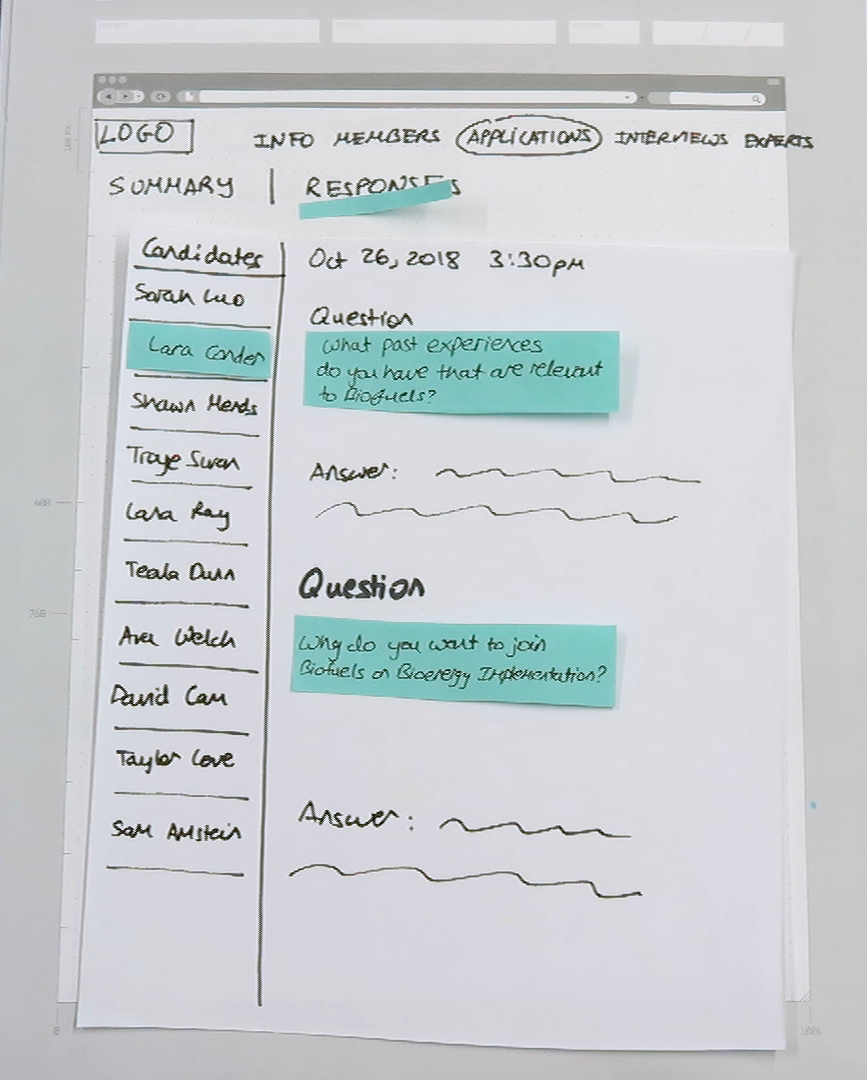 LOGO
INFO MEMBERS APPLICATIONS INTERVIEWS EXPERTS
SUMMARY | RESPONSES
Candidates
Sarah Luo
Lara Conden
Shawn Mends
Traye Swan
Lara Ray
Teala Dunn
Ava Welch
David Cam
Taylor Love
Sam Amstein
Oct 26, 2018 3:30pm
Question
What past experiences
do you have that are relevant
to Biofuels?
Answer:
Question
Why do you want to join
Biofuels on Bioenergy Implementation?
Answer:
600
760
0